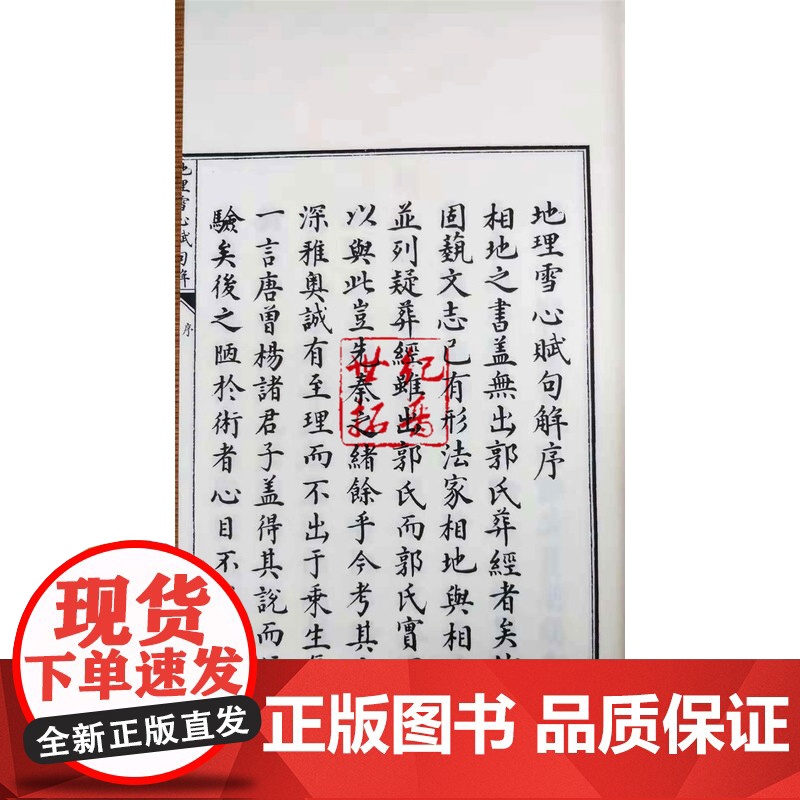 地理雪心賦句解序
相地之書蓋無出郭氏葬經者矣
固藝文志已有形法家相地與相
並列疑葬經雖出郭氏而郭氏實
以與此豈先秦之緒餘乎今考其
深雅奧誠有至理而不出于乘生
一言唐曾楊諸君子盖得其說而
驗矣後之陋於術者心目不
地理雪心賦句解
序
世紀
拓番
正
全新正版发货
正版图书 品质保证